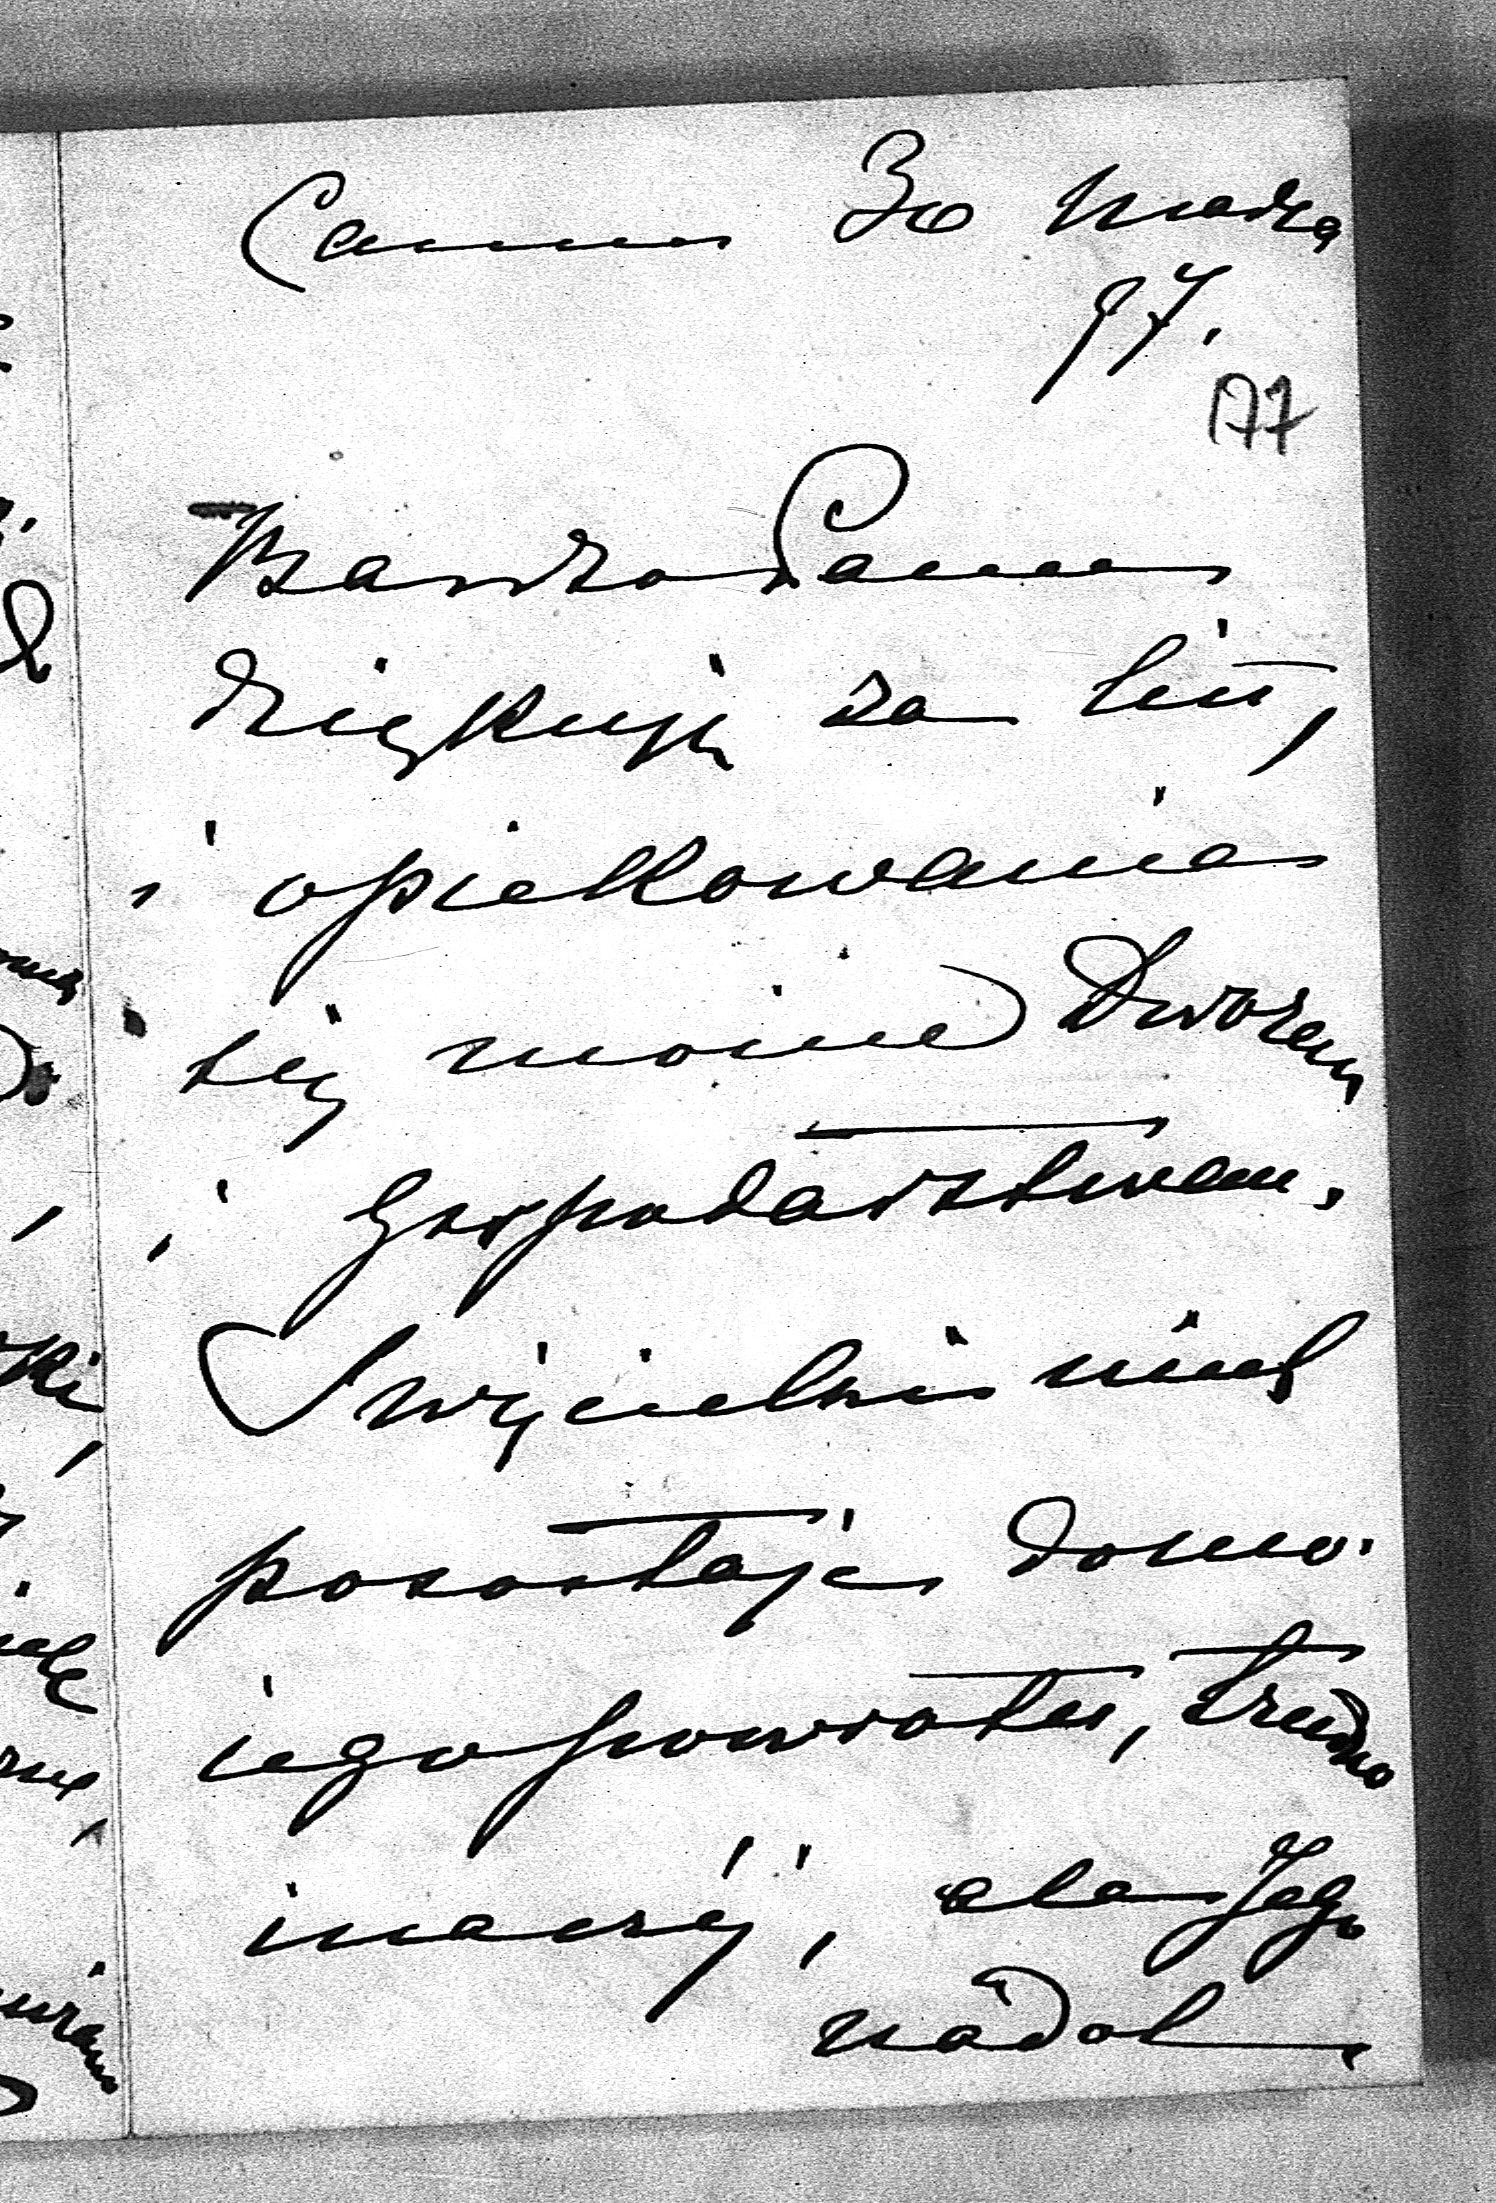 Cannes 30 marca
97.
177
Bardzo Panu
dziękuję za list,
i opiekowanie
się moim Dworem
i Gospodarstwem.
Święcielski niech
pozostaje do mo-
jego powrotu, trudno
inaczéj, ale Jego
nadal